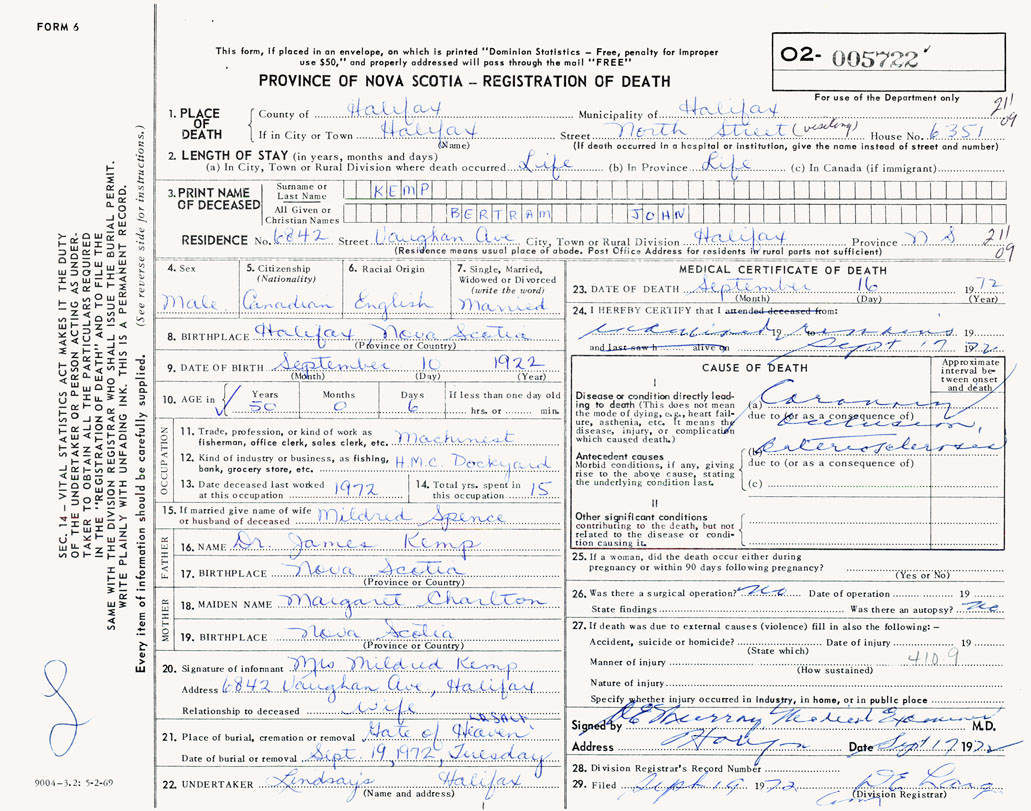 FORM 6
This form, if placed in an envelope, on which is printed "Dominion Statistics – Free, penalty for improper
use $50," and properly addressed will pass through the mail "FREE"
O2- 005722
PROVINCE OF NOVA SCOTIA – REGISTRATION OF DEATH
For use of the Department only
211
09
1. PLACE OF DEATH
County of Halifax Municipality of Halifax
If in City or Town Halifax Street North Street (visiting) House No. 6351
(Name) (If death occurred in a hospital or institution, give the name instead of street and number)
2. LENGTH OF STAY (in years, months and days)
(a) In City, Town or Rural Division where death occurred Life (b) In Province Life (c) In Canada (if immigrant)
3. PRINT NAME OF DECEASED
Surname or Last Name KEMP
All Given or Christian Names BERTRAM JOHN
RESIDENCE No. 6842 Street Vaughan Ave City, Town or Rural Division Halifax Province N S 211
09
(Residence means usual place of abode. Post Office Address for residents in rural parts not sufficient)
4. Sex
Male
5. Citizenship
(Nationality)
Canadian
6. Racial Origin
English
7. Single, Married,
Widowed or Divorced
(write the word)
Married
8. BIRTHPLACE Halifax, Nova Scotia
(Province or Country)
9. DATE OF BIRTH September 10 1922
(Month) (Day) (Year)
10. AGE in
Years Months Days If less than one day old
50 0 6 hrs. or min.
OCCUPATION
11. Trade, profession or kind of work as
fisherman, office clerk, sales clerk, etc. Machinest
12. Kind of industry or business, as fishing,
bank, grocery store, etc. H.M.C. Dockyard
13. Date deceased last worked
at this occupation 1972
14. Total yrs. spent in
this occupation 15
15. If married give name of wife
or husband of deceased Mildred Spence
FATHER
16. NAME Dr. James Kemp
17. BIRTHPLACE Nova Scotia
(Province or Country)
MOTHER
18. MAIDEN NAME Margaret Charlton
19. BIRTHPLACE Nova Scotia
(Province or Country)
20. Signature of informant Mrs Mildred Kemp
Address 6842 Vaughan Ave, Halifax
Relationship to deceased Wife
21. Place of burial, cremation or removal Gate of Heaven
Date of burial or removal Sept. 19, 1972, Tuesday
22. UNDERTAKER Lindsay's Halifax
(Name and address)
MEDICAL CERTIFICATE OF DEATH
23. DATE OF DEATH September 16 1972
(Month) (Day) (Year)
24. I HEREBY CERTIFY that I attended deceased from:
examined 19 remains 19
and last saw h alive on Sept 17 1972
CAUSE OF DEATH
Approximate
interval be-
tween onset
and death
I
Disease or condition directly lead-
ing to death (This does not mean
the mode of dying, e.g., heart fail-
ure, asthenia, etc. It means the
disease, injury, or complication
which caused death.)
(a) Coronary
due to (or as a consequence of)
occlusion,
Antecedent causes
Morbid conditions, if any, giving
rise to the above cause, stating
the underlying condition last.
(b) arteriosclerosis
due to (or as a consequence of)
(c)
II
Other significant conditions
contributing to the death, but not
related to the disease or condi-
tion causing it.
25. If a woman, did the death occur either during
pregnancy or within 90 days following pregnancy?
(Yes or No)
26. Was there a surgical operation? no Date of operation 19
State findings Was there an autopsy? no
27. If death was due to external causes (violence) fill in also the following: –
Accident, suicide or homicide? Date of injury 19
(State which)
Manner of injury 410.9
(How sustained)
Nature of injury
Specify whether injury occurred in industry, in home, or in public place
Signed by Murray Medical Examiner M.D.
Address Date Sept 17 1972
28. Division Registrar's Record Number
29. Filed Sept 19 1972
(Division Registrar)
SEC. 14 – VITAL STATISTICS ACT MAKES IT THE DUTY
OF THE UNDERTAKER OR PERSON ACTING AS UNDER-
TAKER TO OBTAIN ALL THE PARTICULARS REQUIRED
IN THE "REGISTRATION OF DEATH" AND TO FILE THE
SAME WITH THE DIVISION REGISTRAR WHO SHALL ISSUE THE BURIAL PERMIT.
WRITE PLAINLY WITH UNFADING INK. THIS IS A PERMANENT RECORD.
Every item of information should be carefully supplied. (See reverse side for instructions.)
9004-3.2: 5-2-69